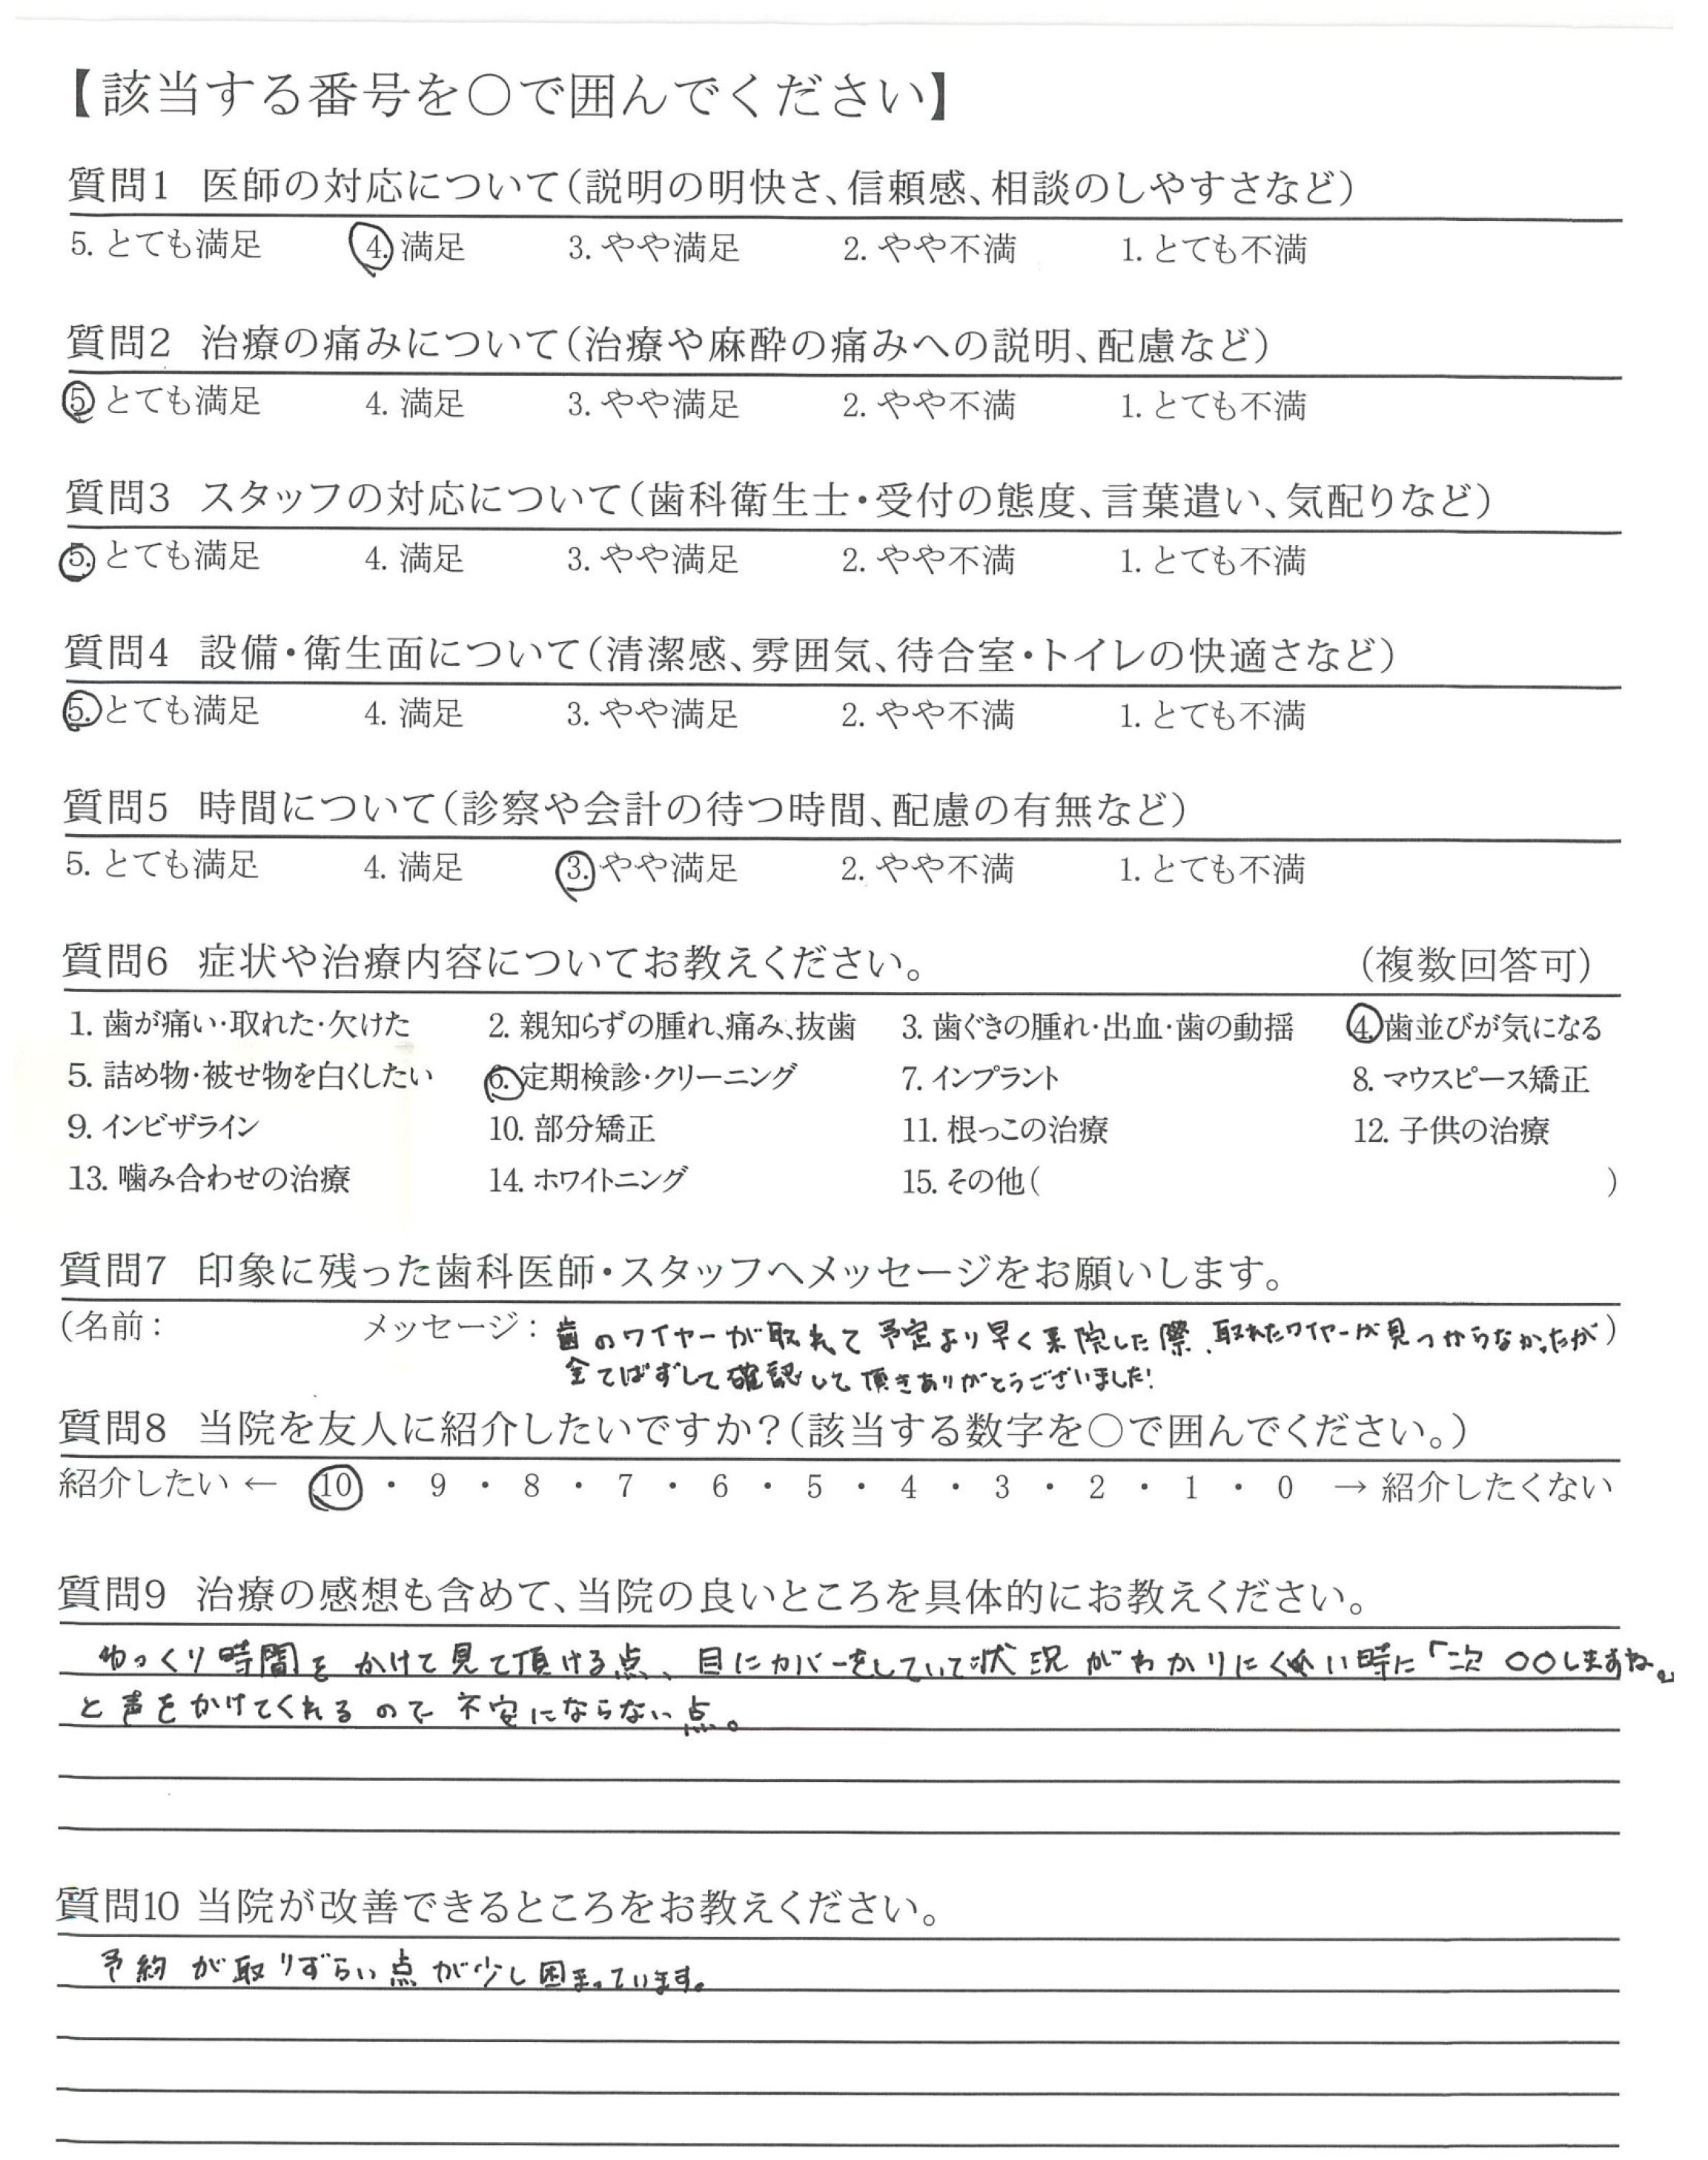 【該当する番号を○で囲んでください】
質問1 医師の対応について(説明の明快さ、信頼感、相談のしやすさなど)
5. とても満足 4. 満足 3. やや満足 2. やや不満 1. とても不満
質問2 治療の痛みについて(治療や麻酔の痛みへの説明、配慮など)
5 とても満足 4. 満足 3. やや満足 2. やや不満 1. とても不満
質問3 スタッフの対応について(歯科衛生士・受付の態度、言葉遣い、気配りなど)
5. とても満足 4. 満足 3. やや満足 2. やや不満 1. とても不満
質問4 設備・衛生面について(清潔感、雰囲気、待合室・トイレの快適さなど)
5. とても満足 4. 満足 3. やや満足 2. やや不満 1. とても不満
質問5 時間について(診察や会計の待つ時間、配慮の有無など)
5. とても満足 4. 満足 3. やや満足 2. やや不満 1. とても不満
質問6 症状や治療内容についてお教えください。 (複数回答可)
1. 歯が痛い・取れた・欠けた 2. 親知らずの腫れ、痛み、抜歯 3. 歯ぐきの腫れ・出血・歯の動揺 4. 歯並びが気になる
5. 詰め物・被せ物を白くしたい 6. 定期検診・クリーニング 7. インプラント 8. マウスピース矯正
9. インビザライン 10. 部分矯正 11. 根っこの治療 12. 子供の治療
13. 噛み合わせの治療 14. ホワイトニング 15. その他( )
質問7 印象に残った歯科医師・スタッフへメッセージをお願いします。
(名前: メッセージ: 歯のワイヤーが取れて予定より早く来院した際、取れたワイヤーが見つからなかったが)
全てはずして確認して頂きありがとうございました!
質問8 当院を友人に紹介したいですか?(該当する数字を○で囲んでください。)
紹介したい ← 10 ・ 9 ・ 8 ・ 7 ・ 6 ・ 5 ・ 4 ・ 3 ・ 2 ・ 1 ・ 0 → 紹介したくない
質問9 治療の感想も含めて、当院の良いところを具体的にお教えください。
ゆっくり時間をかけて見て頂ける点、目にカバーをしていて状況がわかりにくい時に「次○○しますね。」
と声をかけてくれるので不安にならない点。
質問10 当院が改善できるところをお教えください。
予約が取りずらい点が少し困まっています。